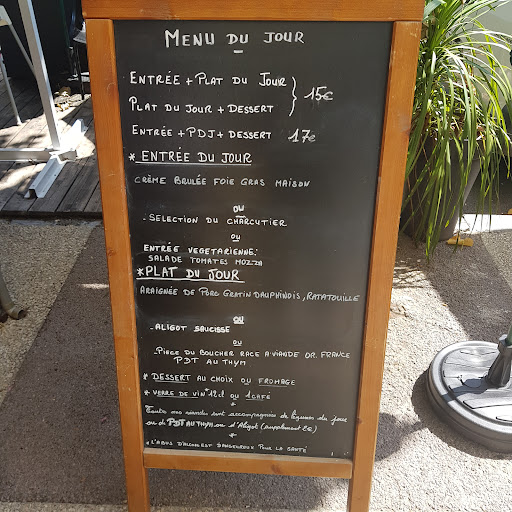 MENU DU JOUR
ENTRÉE + PLAT DU JOUR
PLAT DU JOUR + DESSERT } 15€
ENTRÉE + PDJ + DESSERT 17€
* ENTRÉE DU JOUR
CRÈME BRULÉE FOIE GRAS MAISON
OU
- SELECTION DU CHARCUTIER
OU
ENTRÉE VEGETARIENNE:
SALADE TOMATES MOZZA
*PLAT DU JOUR
ARAIGNÉE DE PORC GRATIN DAUPHINOIS, RATATOUILLE
OU
- ALIGOT SAUCISSE
OU
- PIECE DU BOUCHER RACE A VIANDE OR. FRANCE
PDT AU THYM
* DESSERT AU CHOIX OU FROMAGE
* VERRE DE VIN 12cl OU 1 CAFÉ
*
Toutes nos viandes sont accompagnées de légumes du jour
ou de PDT AU THYM ou d'Aligot (supplement 2€)
*
* L'ABUS D'ALCOOL EST DANGEREUX POUR LA SANTÉ